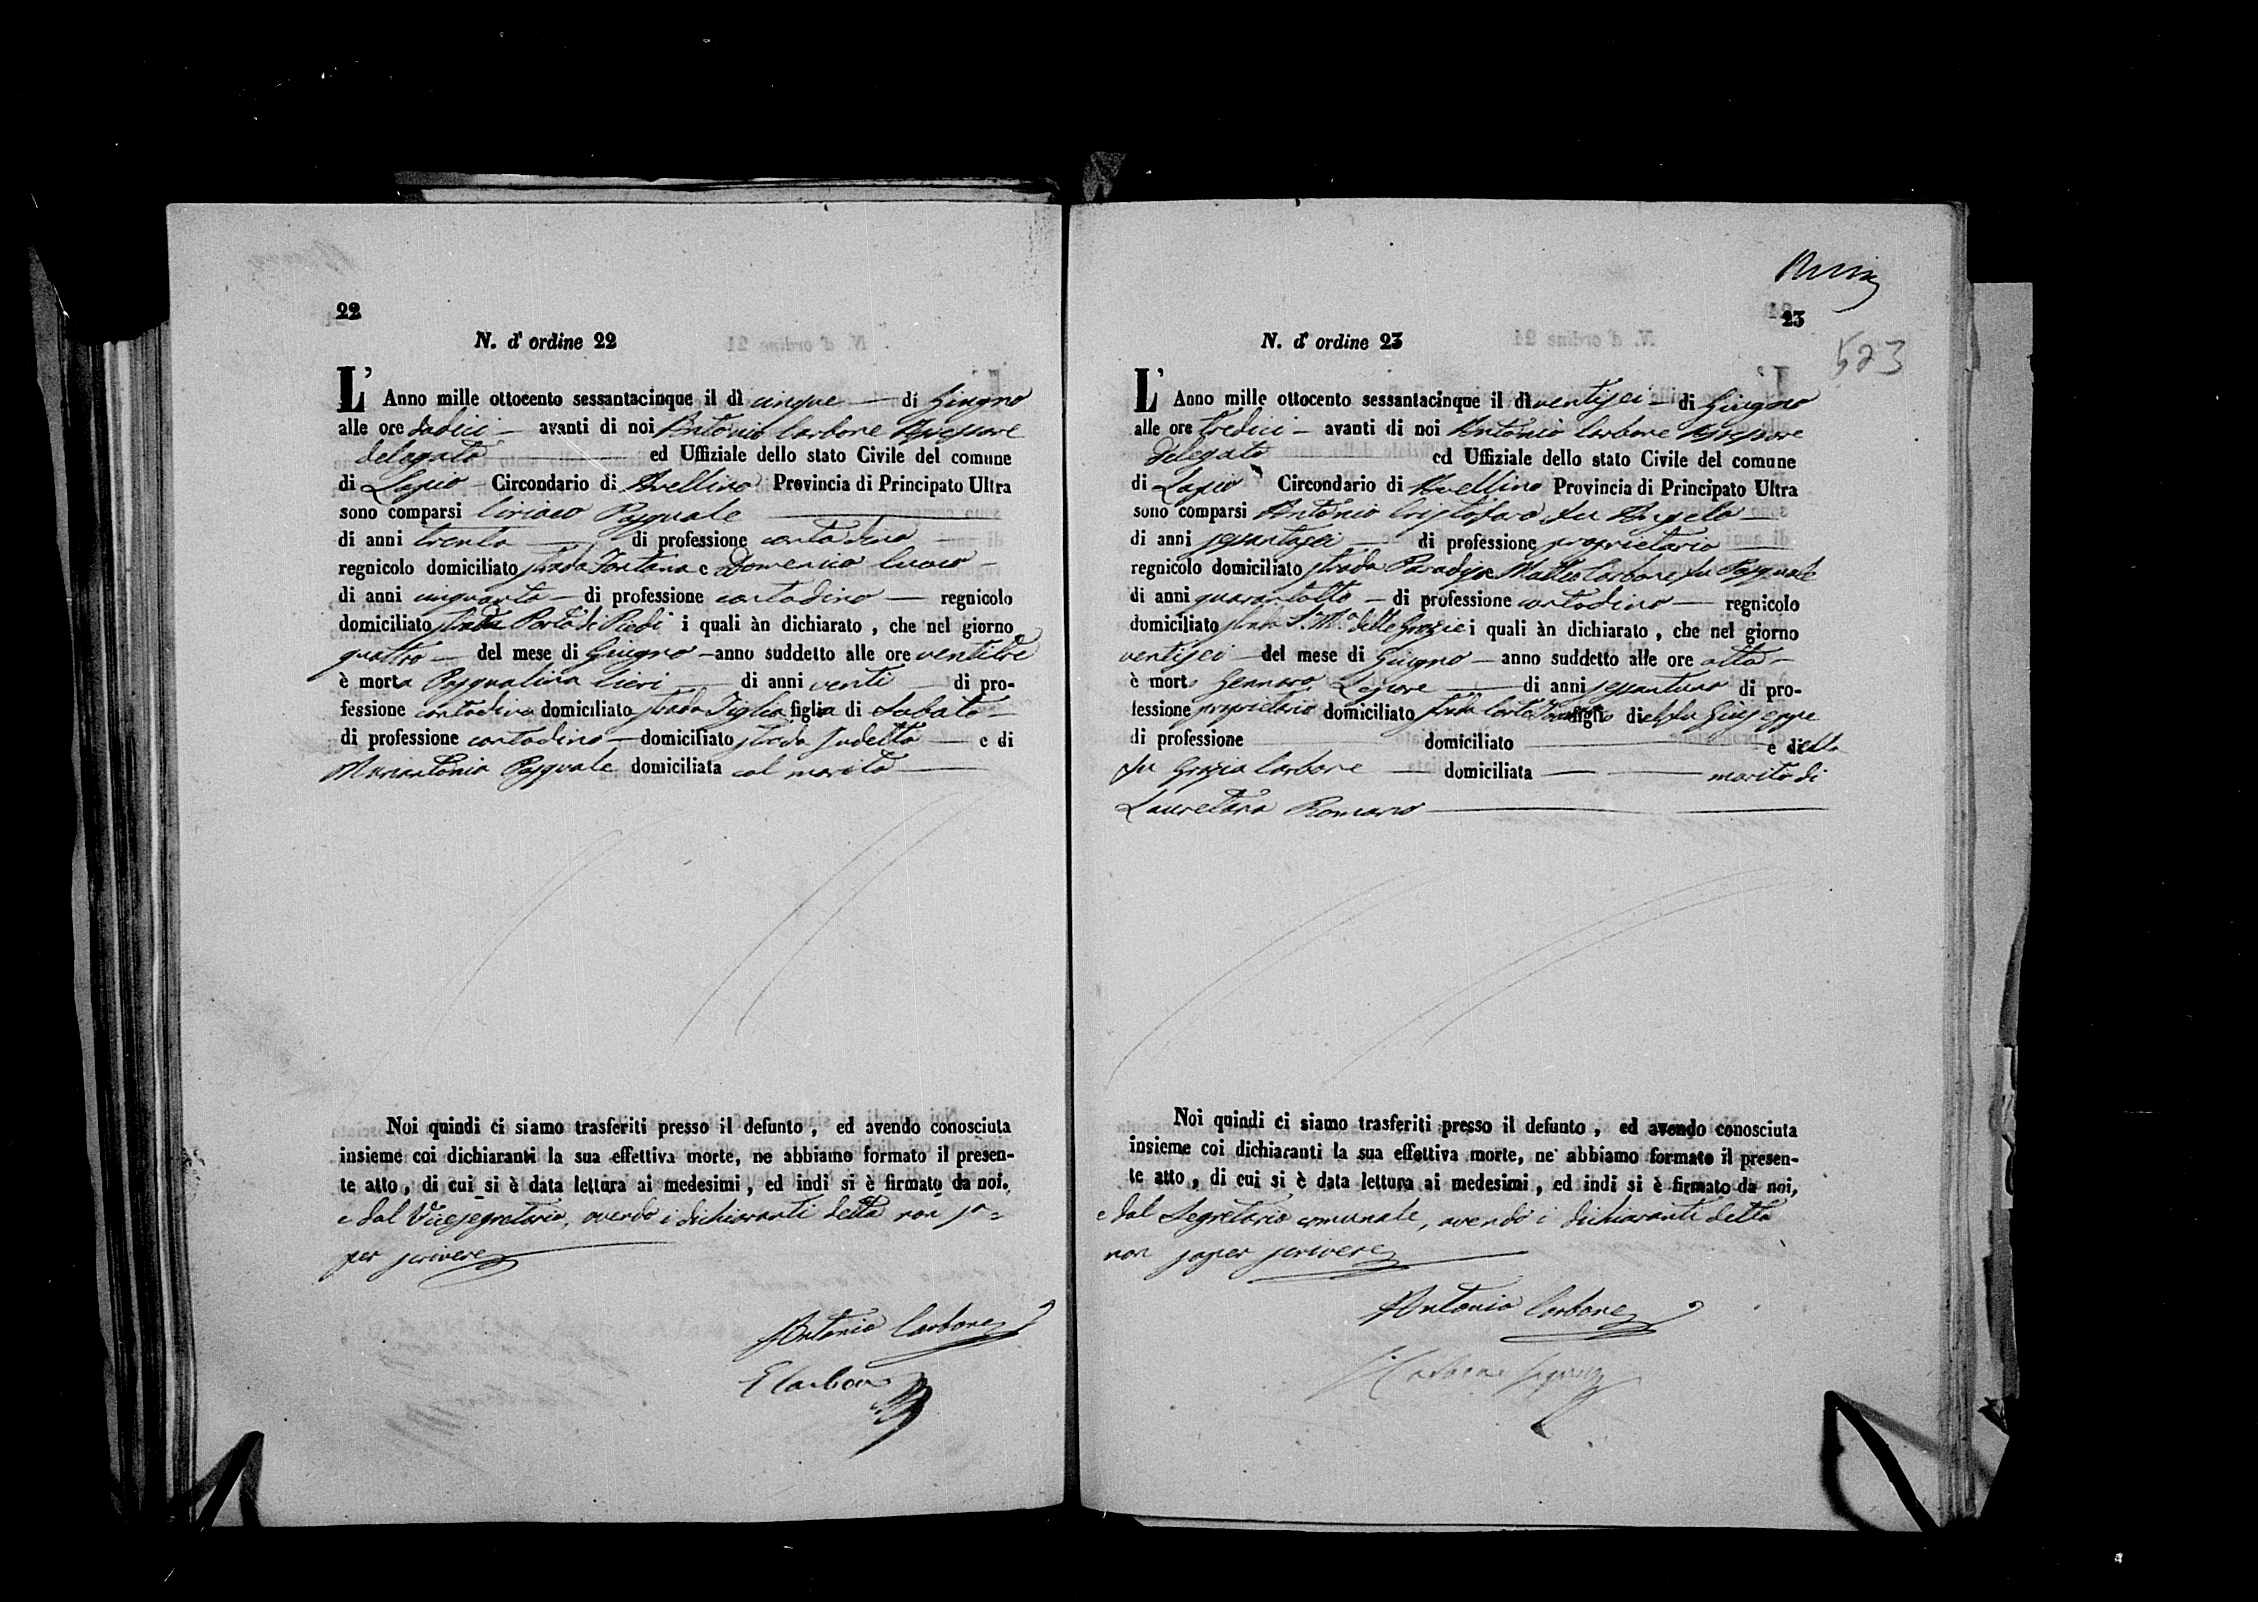 22
N. d' ordine 22
L' Anno mille ottocento sessantacinque il dì cinque di Giugno
alle ore dodici avanti di noi Antonio Carbone Assessore
delegato ed Uffiziale dello stato Civile del comune
di Lapio Circondario di Avellino Provincia di Principato Ultra
sono comparsi Ciriaco Pasquale
di anni trenta di professione contadino
regnicolo domiciliato strada Fontana e Domenico
di anni cinquanta di professione contadino regnicolo
domiciliato strada Porta di Piedi i quali àn dichiarato , che nel giorno
quattro del mese di Giugno anno suddetto alle ore ventitre
è morta Pasqualina Cieri di anni venti di pro-
fessione contadina domiciliato strada Tiglio figlia di Sabato
di professione contadino domiciliato strada sudetta e di
Mariantonia Pasquale domiciliata col marito
Noi quindi ci siamo trasferiti presso il defunto , ed avendo conosciuta
insieme coi dichiaranti la sua effettiva morte, ne abbiamo formato il presen-
te atto , di cui si è data lettura ai medesimi , ed indi si è firmato da noi,
e dal Vicesegretario, avendo i dichiaranti detto non sa=
per scrivere
Antonio Carbone
E Carbone
23
523
N. d' ordine 23
L' Anno mille ottocento sessantacinque il dì ventisei di Giugno
alle ore tredici avanti di noi Antonio Carbone Assessore
delegato ed Uffiziale dello stato Civile del comune
di Lapio Circondario di Avellino Provincia di Principato Ultra
sono comparsi Antonio Cristofaro fu Angelo
di anni sessantasei di professione proprietario
regnicolo domiciliato strada Paradiso e Matteo Carbone fu Pasquale
di anni quarantotto di professione contadino regnicolo
domiciliato strada S. M.a delle Grazie i quali àn dichiarato , che nel giorno
ventisei del mese di Giugno anno suddetto alle ore otto
è morto Gennaro Lepore di anni sessantuno di pro-
fessione proprietario domiciliato strada figlio del fu Giuseppe
di professione domiciliato e della
fu Grazia Carbone domiciliata marito di
Lauretana Romano
Noi quindi ci siamo trasferiti presso il defunto , ed avendo conosciuta
insieme coi dichiaranti la sua effettiva morte, ne abbiamo formato il presen-
te atto , di cui si è data lettura ai medesimi , ed indi si è firmato da noi,
e dal Segretario comunale, avendo i dichiaranti detto
non saper scrivere
Antonio Carbone
Carbone